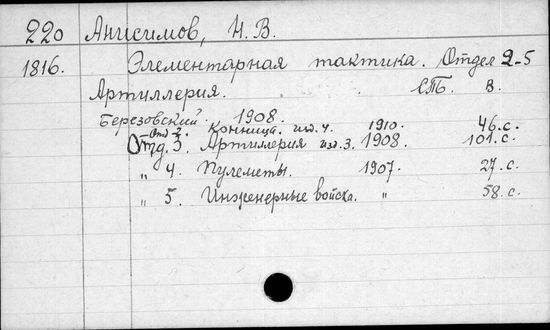 220 Анисимов, Н. В.
1816. Элементарная тактика. Отдел 2-5
Артиллерия. СПБ. 8.
Березовский. 1908.
Отд. 2. Конница. изд. 4. 1910. 46. с.
Отд. 3. Артиллерия изд. 3. 1908. 101. с.
„ 4. Пулеметы. 1907. 27. с.
„ 5. Инженерные войска. „ 58. с.